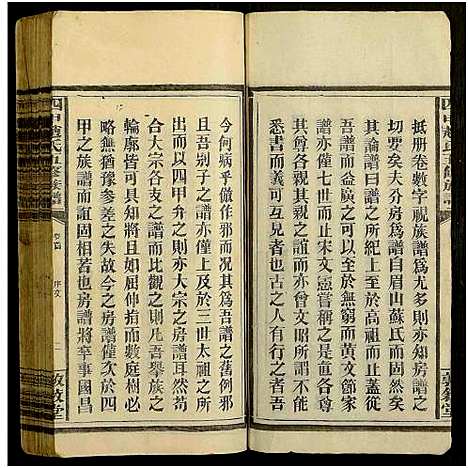 抵册卷數字視族譜爲尤多則亦房譜之
切要矣夫分房爲譜自眉山蘇氏而固然矣
其論譜曰譜之所紀上至高祖而止蓋歐
譜法而益廣之以至於無窮而黃文節修
譜亦僅至七世止宋文憲嘗稱之曰
其曾各親其親之誼而亦曾文昭所謂不能
悉書而義可互見者也古之人有行之者吾
今何病乎倣作邪而况其爲吾譜之舊例邪
且吾别子之譜亦僅上及於三世太祖之所
出而以四甲弁之則亦大宗之房譜耳然而
合大宗各支之譜而比觀之則凡吾舉族之
輪廓皆可具知將如屈伸指而數庭樹必
略無猶豫參差之失故今之房譜僅次於四
甲之族譜而誼固相若也房譜將卒事國昌
四甲趙氏五修族譜
卷首
序文
二
敦敘堂
四甲趙氏五修族譜
敦敘堂